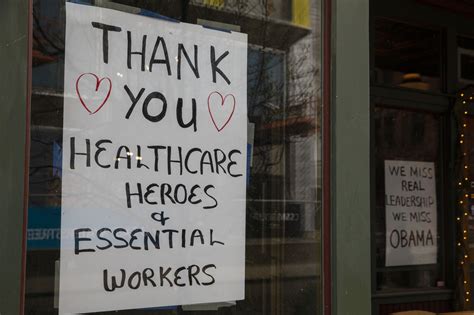 THANK
YOU
HEALTHCARE
HEROES
&
ESSENTIAL
WORKERS
WE MISS
REAL
LEADERSHIP
WE MISS
OBAMA
STREET